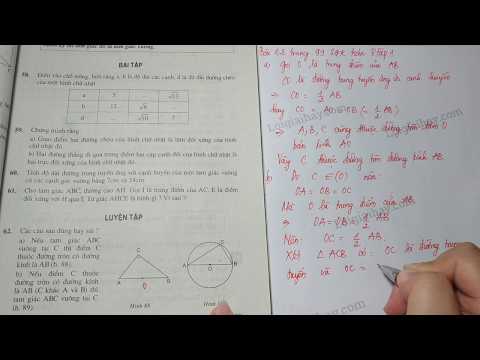 BÀI TẬP
58. Điền vào chỗ trống, biết rằng a, b là độ dài các cạnh, d là độ dài đường chéo
của một hình chữ nhật.
a 5 .... √13
b 12 √6 ....
d .... √10 7
59. Chứng minh rằng
a) Giao điểm hai đường chéo của hình chữ nhật là tâm đối xứng của hình
chữ nhật đó.
b) Hai đường thẳng đi qua trung điểm hai cặp cạnh đối của hình chữ nhật là
hai trục đối xứng của hình chữ nhật đó.
60. Tính độ dài đường trung tuyến ứng với cạnh huyền của một tam giác vuông
có các cạnh góc vuông bằng 7cm và 24cm.
61. Cho tam giác ABC, đường cao AH. Gọi I là trung điểm của AC, E là điểm
đối xứng với H qua I. Tứ giác AHCE là hình gì ? Vì sao ?
LUYỆN TẬP
62. Các câu sau đúng hay sai ?
a) Nếu tam giác ABC
vuông tại C thì điểm C
thuộc đường tròn có đường
kính là AB (h. 88).
b) Nếu điểm C thuộc
đường tròn có đường kính
là AB (C khác A và B) thì
tam giác ABC vuông tại C
(h. 89).
C
A
O
B
Hình 88
C
A
O
B
Bài 62 trang 99 SGK toán 8 tập 1
a) Gọi O là trung điểm của AB
CO là đường trung tuyến ứng với cạnh huyền
⇒ CO = 1/2 AB
hay CO = AO = OB (= 1/2 AB)
⇒ A, B, C cùng thuộc đường tròn
bán kính AO
Vậy C thuộc đường tròn đường kính AB.
b) Do C ∈ (O) nên:
OA = OB = OC
Mà O là trung điểm của AB
⇒ OA = OB = 1/2 AB
Nên: OC = 1/2 AB.
Xét △ ACB có: OC là đường trung
tuyến và OC =
Loigiaihay.com